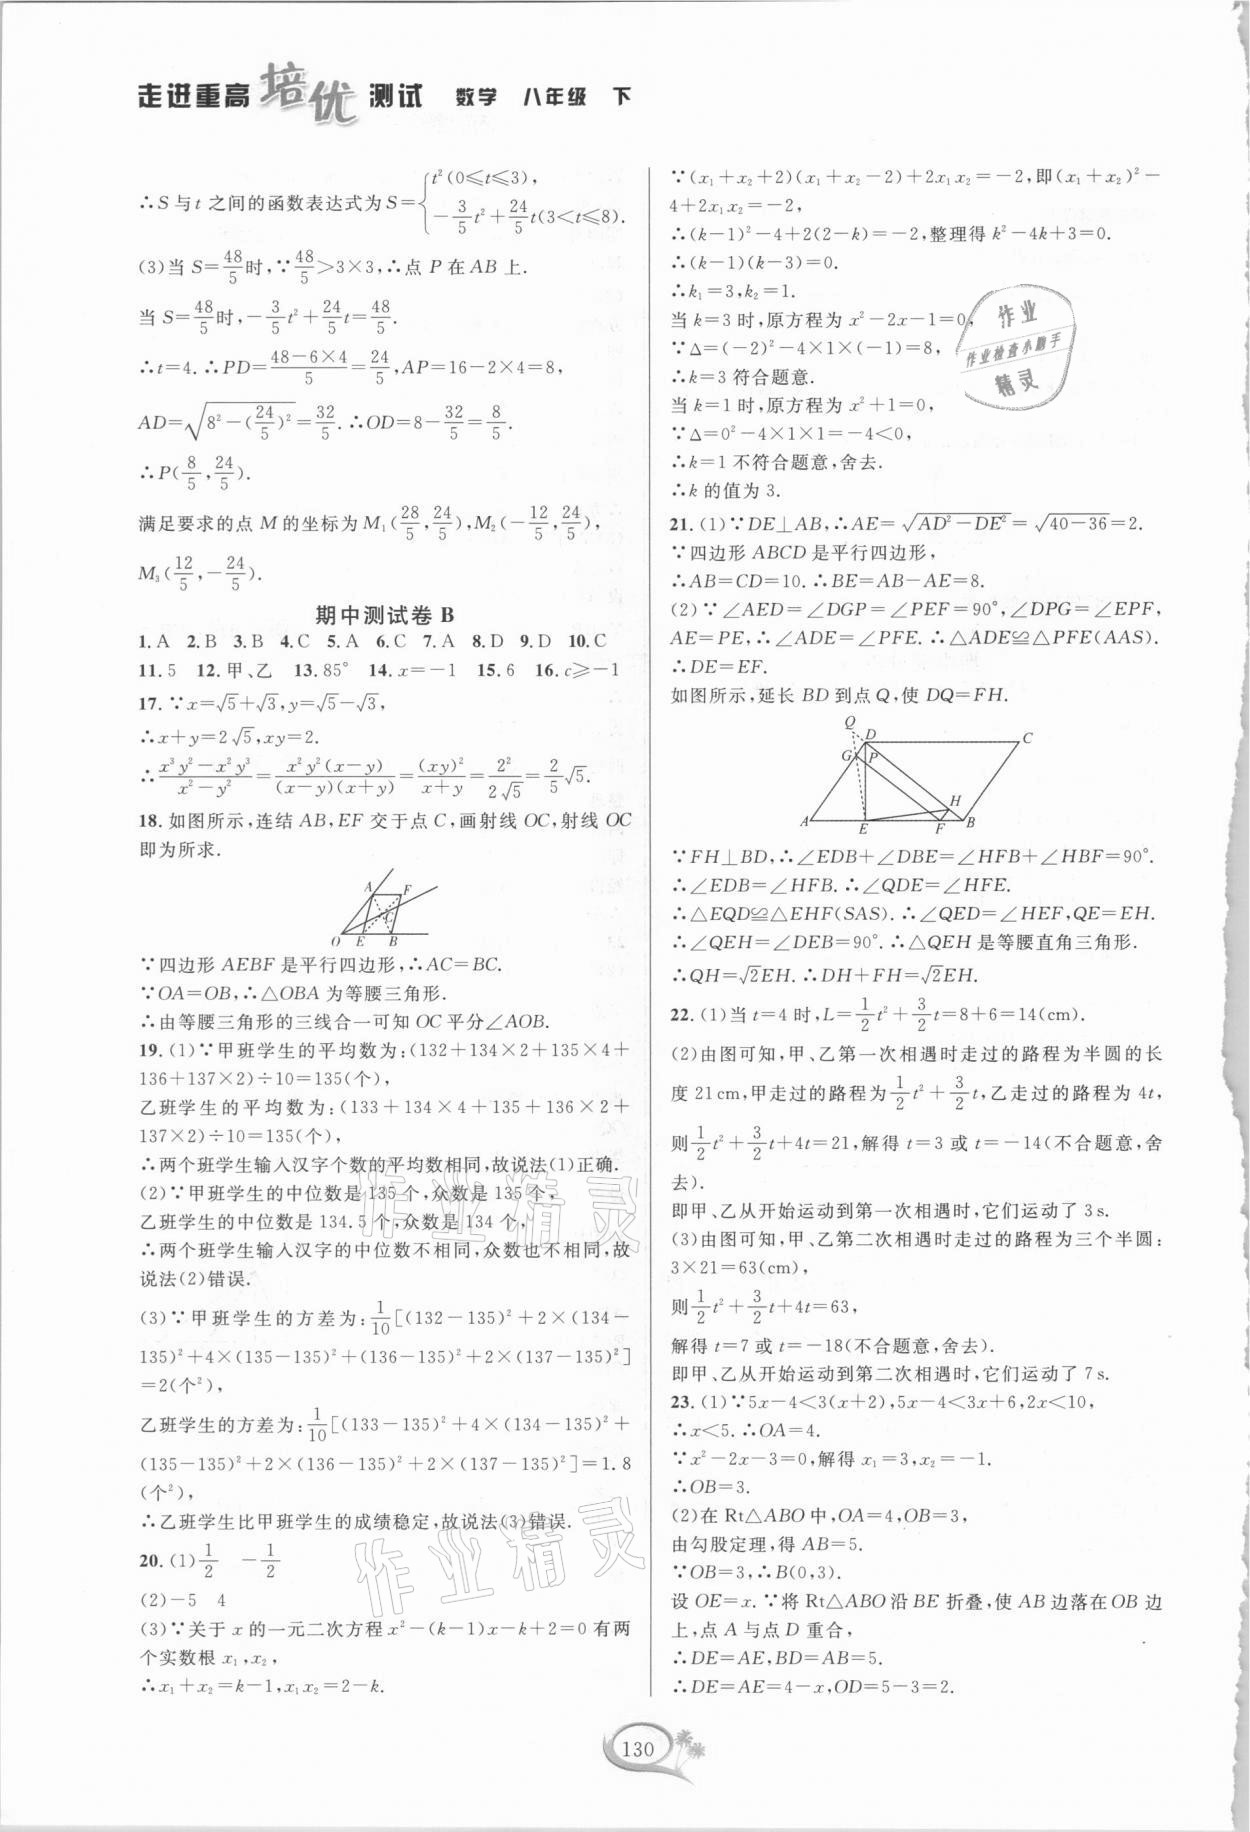 走进重高培优测试 数学 八年级 下
∴S与t之间的函数表达式为S={t²(0≤t≤3), -3/5t²+24/5t(3<t≤8).
(3)当S=48/5时,∵48/5>3×3,∴点P在AB上.
当S=48/5时,-3/5t²+24/5t=48/5.
∴t=4.∴PD=(48-6×4)/5=24/5,AP=16-2×4=8,
AD=√(8²-(24/5)²)=32/5.∴OD=8-32/5=8/5.
∴P(8/5,24/5).
满足要求的点M的坐标为M₁(28/5,24/5),M₂(-12/5,24/5),
M₃(12/5,-24/5).
期中测试卷B
1.A 2.B 3.B 4.C 5.A 6.C 7.A 8.D 9.D 10.C
11.5 12.甲、乙 13.85° 14.x=-1 15.6 16.c≥-1
17.∵x=√5+√3,y=√5-√3,
∴x+y=2√5,xy=2.
∴(x³y²-x²y³)/(x²-y²)=x²y²(x-y)/((x-y)(x+y))=(xy)²/(x+y)=2²/(2√5)=2/5√5.
18.如图所示,连结AB,EF交于点C,画射线OC,射线OC
即为所求.
A F
C
O E B
∵四边形AEBF是平行四边形,∴AC=BC.
∵OA=OB,∴△OBA为等腰三角形.
∴由等腰三角形的三线合一可知OC平分∠AOB.
19.(1)∵甲班学生的平均数为:(132+134×2+135×4+
136+137×2)÷10=135(个),
乙班学生的平均数为:(133+134×4+135+136×2+
137×2)÷10=135(个),
∴两个班学生输入汉字个数的平均数相同,故说法(1)正确.
(2)∵甲班学生的中位数是135个,众数是135个,
乙班学生的中位数是134.5个,众数是134个,
∴两个班学生输入汉字的中位数不相同,众数也不相同,故
说法(2)错误.
(3)∵甲班学生的方差为:1/10[(132-135)²+2×(134-
135)²+4×(135-135)²+(136-135)²+2×(137-135)²]
=2(个²),
乙班学生的方差为:1/10[(133-135)²+4×(134-135)²+
(135-135)²+2×(136-135)²+2×(137-135)²]=1.8
(个²),
∴乙班学生比甲班学生的成绩稳定,故说法(3)错误.
20.(1)1/2 -1/2
(2)-5 4
(3)∵关于x的一元二次方程x²-(k-1)x-k+2=0有两
个实数根x₁,x₂,
∴x₁+x₂=k-1,x₁x₂=2-k.
∵(x₁+x₂+2)(x₁+x₂-2)+2x₁x₂=-2,即(x₁+x₂)²-
4+2x₁x₂=-2,
∴(k-1)²-4+2(2-k)=-2,整理得k²-4k+3=0.
∴(k-1)(k-3)=0.
∴k₁=3,k₂=1.
当k=3时,原方程为x²-2x-1=0,
∵Δ=(-2)²-4×1×(-1)=8,
∴k=3符合题意.
当k=1时,原方程为x²+1=0,
∵Δ=0²-4×1×1=-4<0,
∴k=1不符合题意,舍去.
∴k的值为3.
作业
作业检查小助手
精灵
21.(1)∵DE⊥AB,∴AE=√(AD²-DE²)=√(40-36)=2.
∵四边形ABCD是平行四边形,
∴AB=CD=10.∴BE=AB-AE=8.
(2)∵∠AED=∠DGP=∠PEF=90°,∠DPG=∠EPF,
AE=PE,∴∠ADE=∠PFE.∴△ADE≌△PFE(AAS).
∴DE=EF.
如图所示,延长BD到点Q,使DQ=FH.
Q
D C
G P
H
A E F B
∵FH⊥BD,∴∠EDB+∠DBE=∠HFB+∠HBF=90°.
∴∠EDB=∠HFB.∴∠QDE=∠HFE.
∴△EQD≌△EHF(SAS).∴∠QED=∠HEF,QE=EH.
∴∠QEH=∠DEB=90°.∴△QEH是等腰直角三角形.
∴QH=√2EH.∴DH+FH=√2EH.
22.(1)当t=4时,L=1/2t²+3/2t=8+6=14(cm).
(2)由图可知,甲、乙第一次相遇时走过的路程为半圆的长
度21cm,甲走过的路程为1/2t²+3/2t,乙走过的路程为4t,
则1/2t²+3/2t+4t=21,解得t=3或t=-14(不合题意,舍
去).
即甲、乙从开始运动到第一次相遇时,它们运动了3s.
(3)由图可知,甲、乙第二次相遇时走过的路程为三个半圆:
3×21=63(cm),
则1/2t²+3/2t+4t=63,
解得t=7或t=-18(不合题意,舍去).
即甲、乙从开始运动到第二次相遇时,它们运动了7s.
23.(1)∵5x-4<3(x+2),5x-4<3x+6,2x<10,
∴x<5.∴OA=4.
∵x²-2x-3=0,解得x₁=3,x₂=-1.
∴OB=3.
(2)在Rt△ABO中,OA=4,OB=3,
由勾股定理,得AB=5.
∵OB=3,∴B(0,3).
设OE=x.∵将Rt△ABO沿BE折叠,使AB边落在OB边
上,点A与点D重合,
∴DE=AE,BD=AB=5.
∴DE=AE=4-x,OD=5-3=2.
作业精灵
作业精灵
130